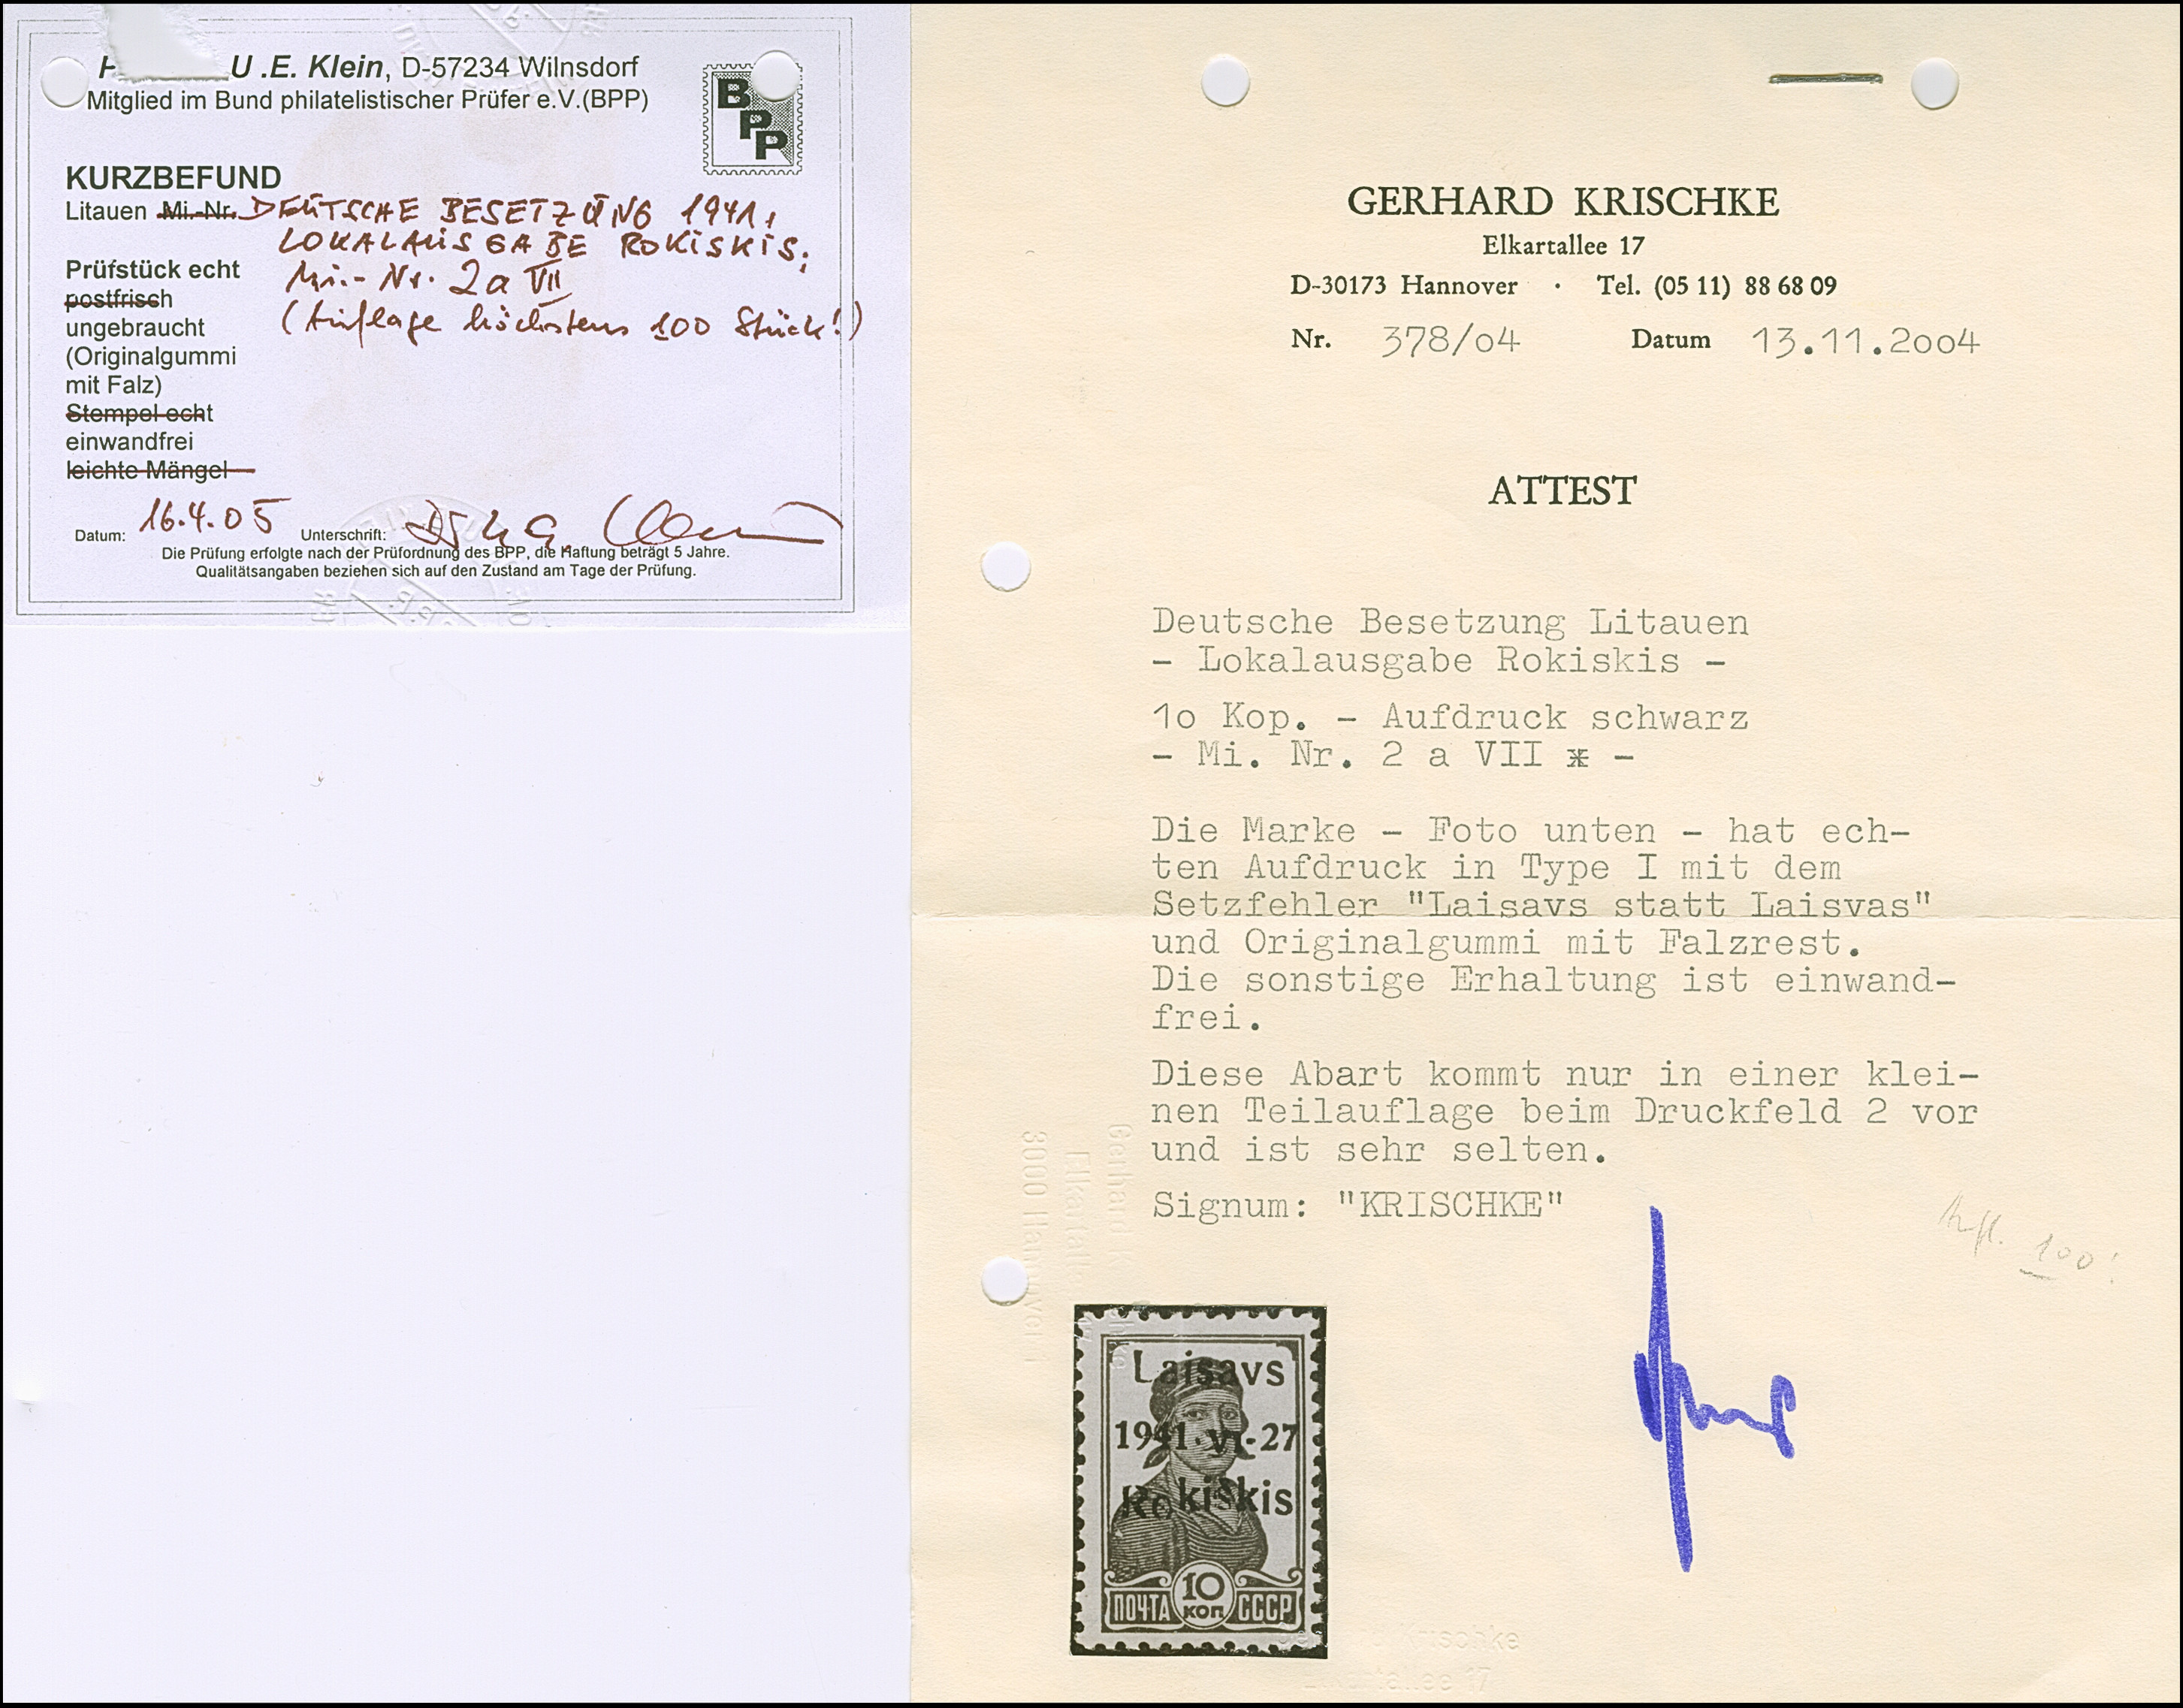 U .E. Klein, D-57234 Wilnsdorf
Mitglied im Bund philatelistischer Prüfer e.V.(BPP)
BPP
KURZBEFUND
Litauen Mi.-Nr. DEUTSCHE BESETZUNG 1941,
LOKALAUSGABE ROKISKIS;
Prüfstück echt Mi.-Nr. 2a VII
postfrisch
ungebraucht (Auflage höchstens 100 Stück!)
(Originalgummi
mit Falz)
Stempel echt
einwandfrei
leichte Mängel
Datum: 16.4.05 Unterschrift:
Die Prüfung erfolgte nach der Prüfordnung des BPP, die Haftung beträgt 5 Jahre.
Qualitätsangaben beziehen sich auf den Zustand am Tage der Prüfung.
GERHARD KRISCHKE
Elkartallee 17
D-30173 Hannover · Tel. (05 11) 88 68 09
Nr. 378/o4 Datum 13.11.2oo4
ATTEST
Deutsche Besetzung Litauen
- Lokalausgabe Rokiskis -
1o Kop. - Aufdruck schwarz
- Mi. Nr. 2 a VII * -
Die Marke - Foto unten - hat ech-
ten Aufdruck in Type I mit dem
Setzfehler "Laisavs statt Laisvas"
und Originalgummi mit Falzrest.
Die sonstige Erhaltung ist einwand-
frei.
Diese Abart kommt nur in einer klei-
nen Teilauflage beim Druckfeld 2 vor
und ist sehr selten.
Signum: "KRISCHKE"
Aufl. 100!
Laisavs
1941·VI·27
Rokiskis
10
ПОЧТА КОП СССР
Elkartallee 17